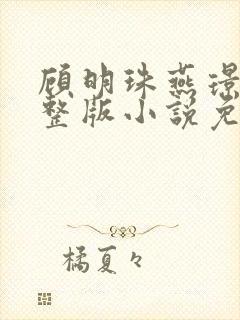 顾明珠燕璟
整版小说免
橘夏々